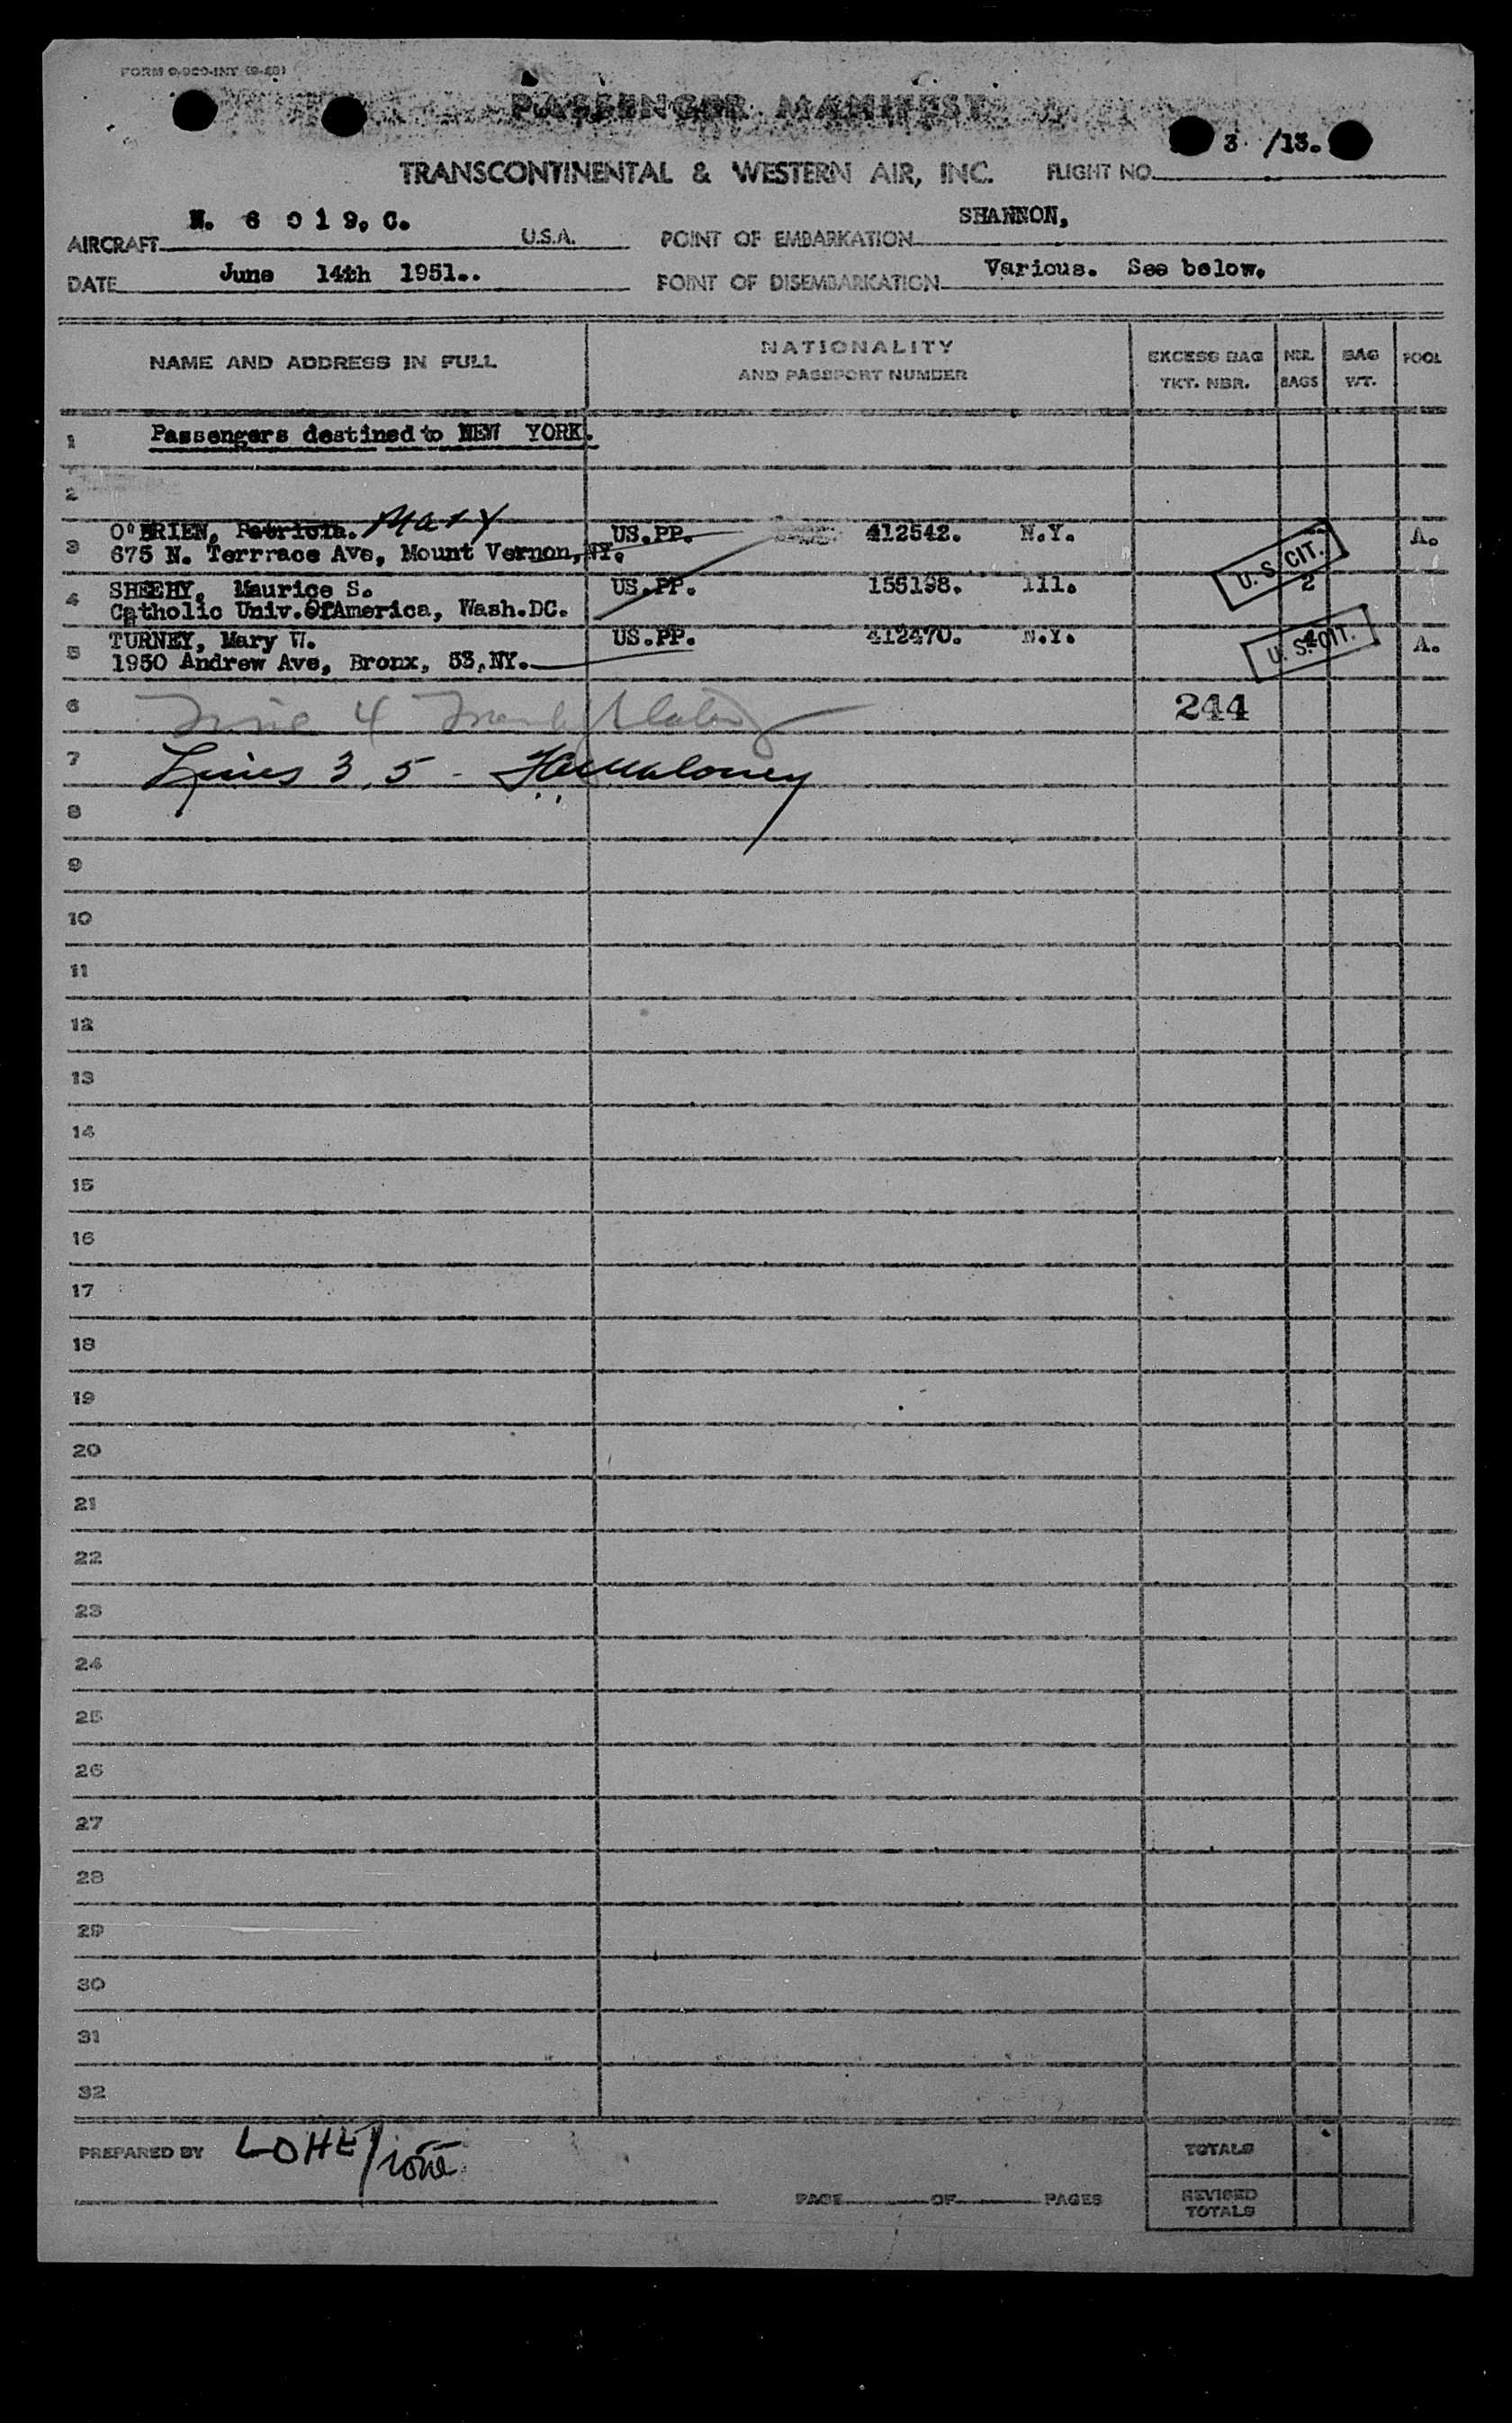 FORM 0-960-INT (9-48)
PASSENGER MANIFEST
3 /13.
TRANSCONTINENTAL & WESTERN AIR, INC. FLIGHT NO.
AIRCRAFT N. 6 0 1 9. C. U.S.A. POINT OF EMBARKATION SHANNON,
DATE June 14th 1951.. POINT OF DISEMBARKATION Various. See below.
NAME AND ADDRESS IN FULL NATIONALITY AND PASSPORT NUMBER EXCESS BAG TKT. NBR. NBR. BAGS BAG WT. POOL
1 Passengers destined to NEW YORK.
2
3 O'BRIEN, Patricia. Mary US.PP. 412542. N.Y. U. S. CIT. A.
675 N. Terrrace Ave, Mount Vernon, NY.
4 SHEEHY, Maurice S. US.PP. 155198. 111. 2
Catholic Univ. Of America, Wash.DC.
5 TURNEY, Mary W. US.PP. 412470. N.Y. U. S. CIT. A.
1950 Andrew Ave, Bronx, 53, NY.
6 Line 4 244
7 Lines 3, 5 - Maloney
8
9
10
11
12
13
14
15
16
17
18
19
20
21
22
23
24
25
26
27
28
29
30
31
32
PREPARED BY LOHE/ TOTALS
PAGE OF PAGES REVISED TOTALS